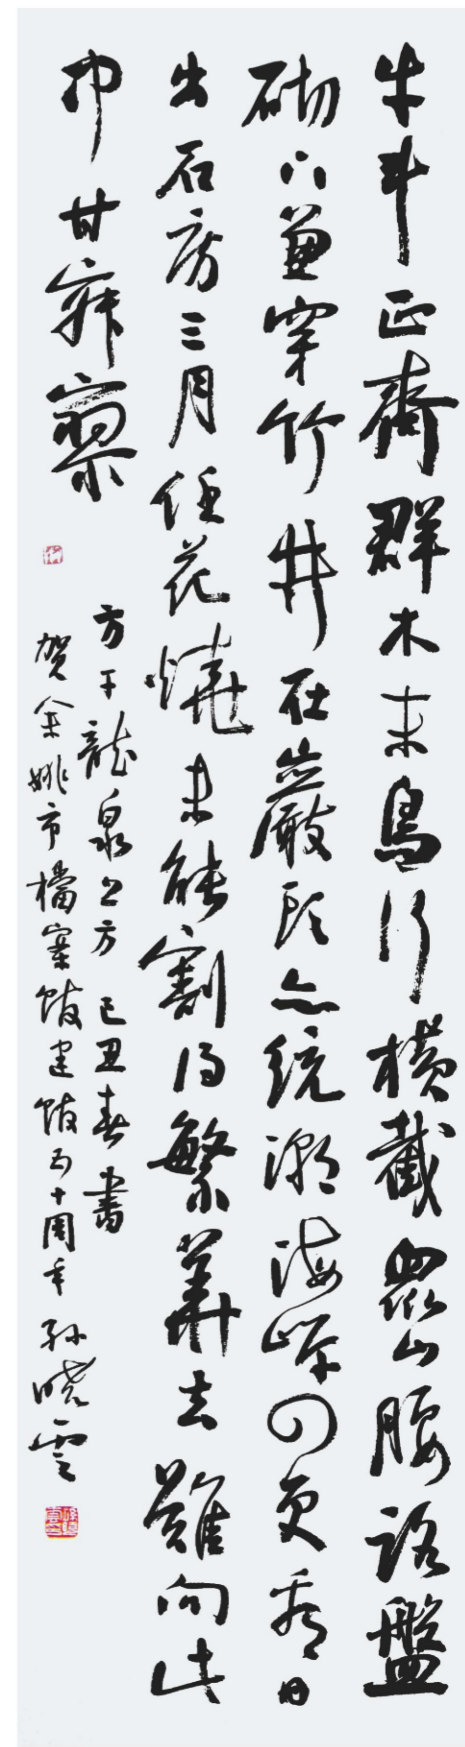 牛斗正齊群木末鳥行横截眾山腰路盤
砌下兼穿竹井在巖頭亦統潮海岸四更看日
出石房三月任花燒未能割得繁華去難向此
中甘寂寥
方干龍泉上方 己丑春書
賀余姚市檔案館建館五十周年 孫曉雲